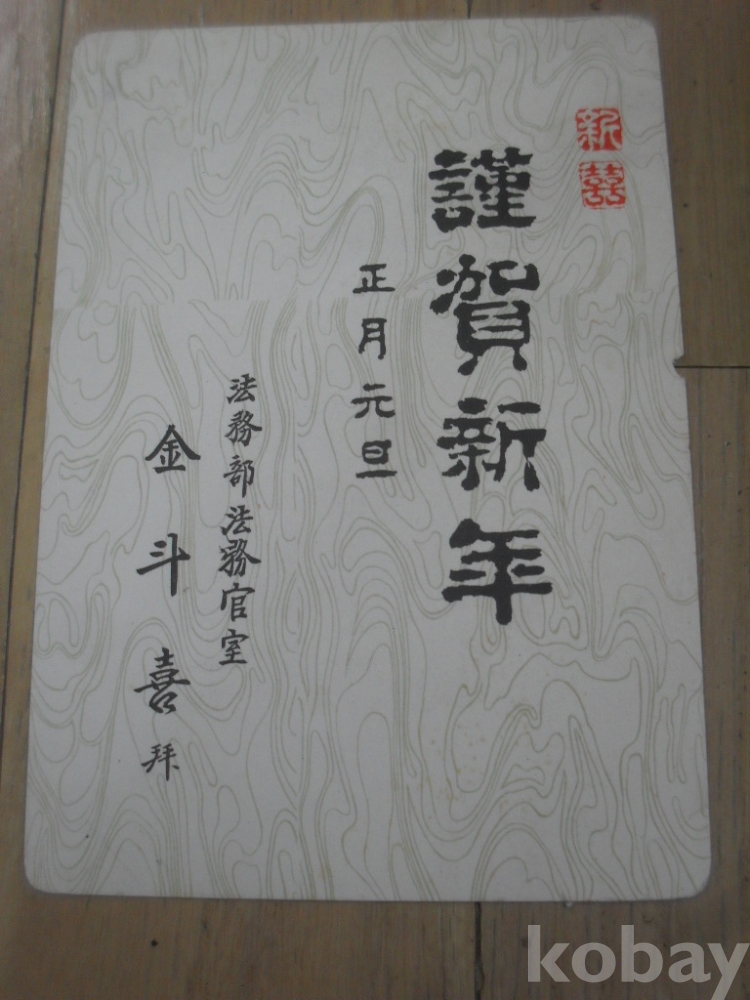 新
囍
謹賀新年
正月元旦
法務部法務官室
金斗喜拜
kobay